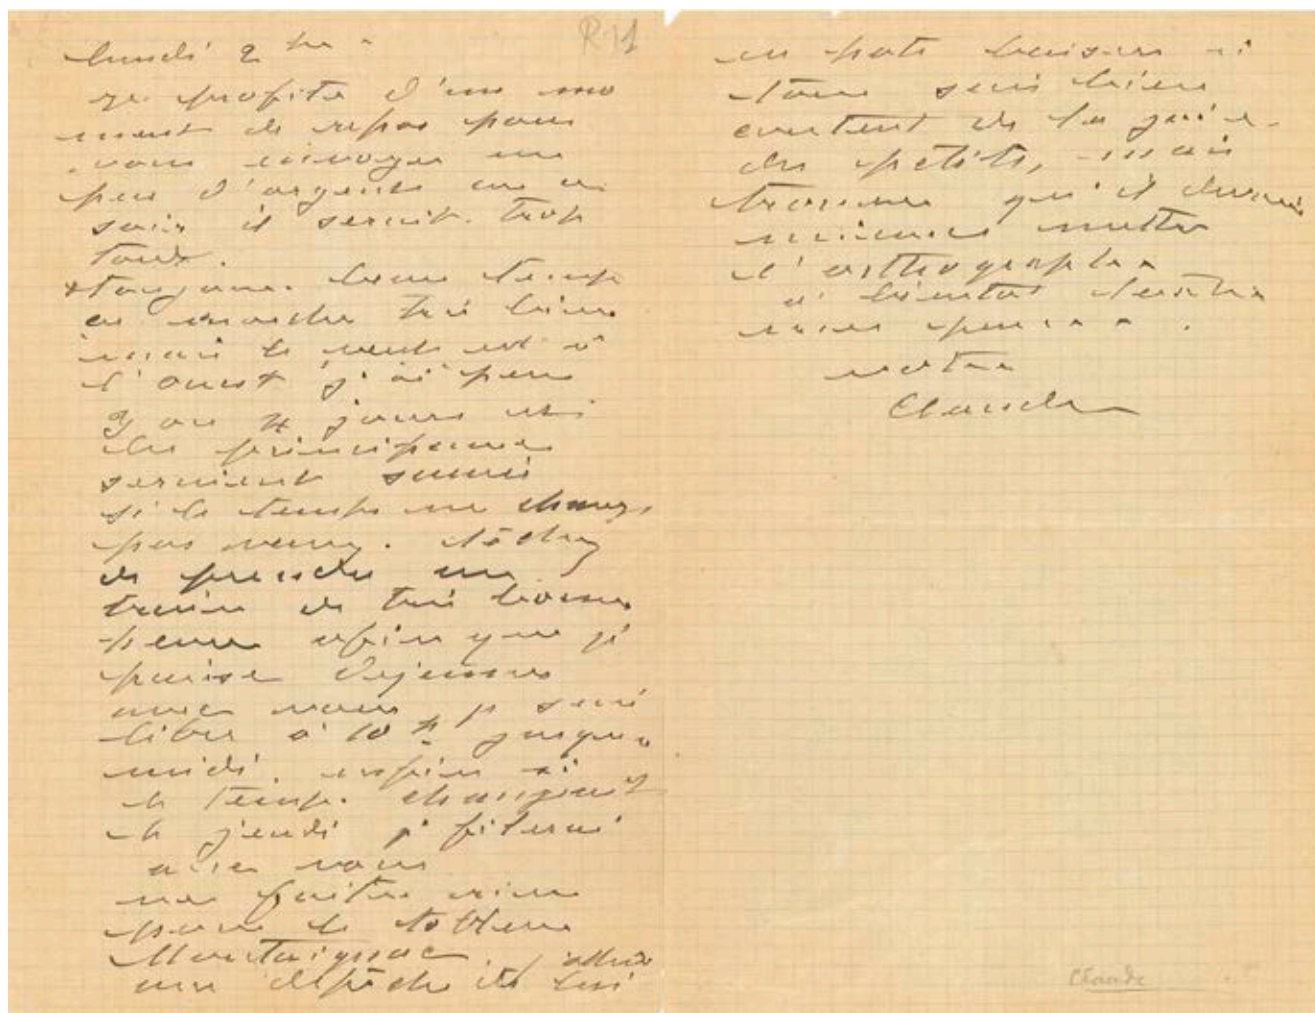 R11
lundi 2 h
je profite d'un mo
ment de repos pour
vous envoyer un
peu d'argent car ce
soir il serait trop
tard.
toujours beau temps
ça marche très bien
mais le vent est à
l'ouest j'ai peur
que 4 jours
des principaux
seraient sauvés
si le temps ne change
pas venez. tâchez
de prendre un
train de très bonne
heure afin que je
puisse déjeuner
avec vous, je serai
libre à 10 h jusqu'a
midi. enfin si
le temps changeait
le jeudi je filerai
avec vous
ne faites rien
pour le tableau
Montaignac. j'attends
une dépêche de lui
baisers
tous suis bien
content de la joie
des petits, mais
trouve qu'il devrait
mieux mettre
l'orthographe
à bientôt
mes
votre
Claude
Claude